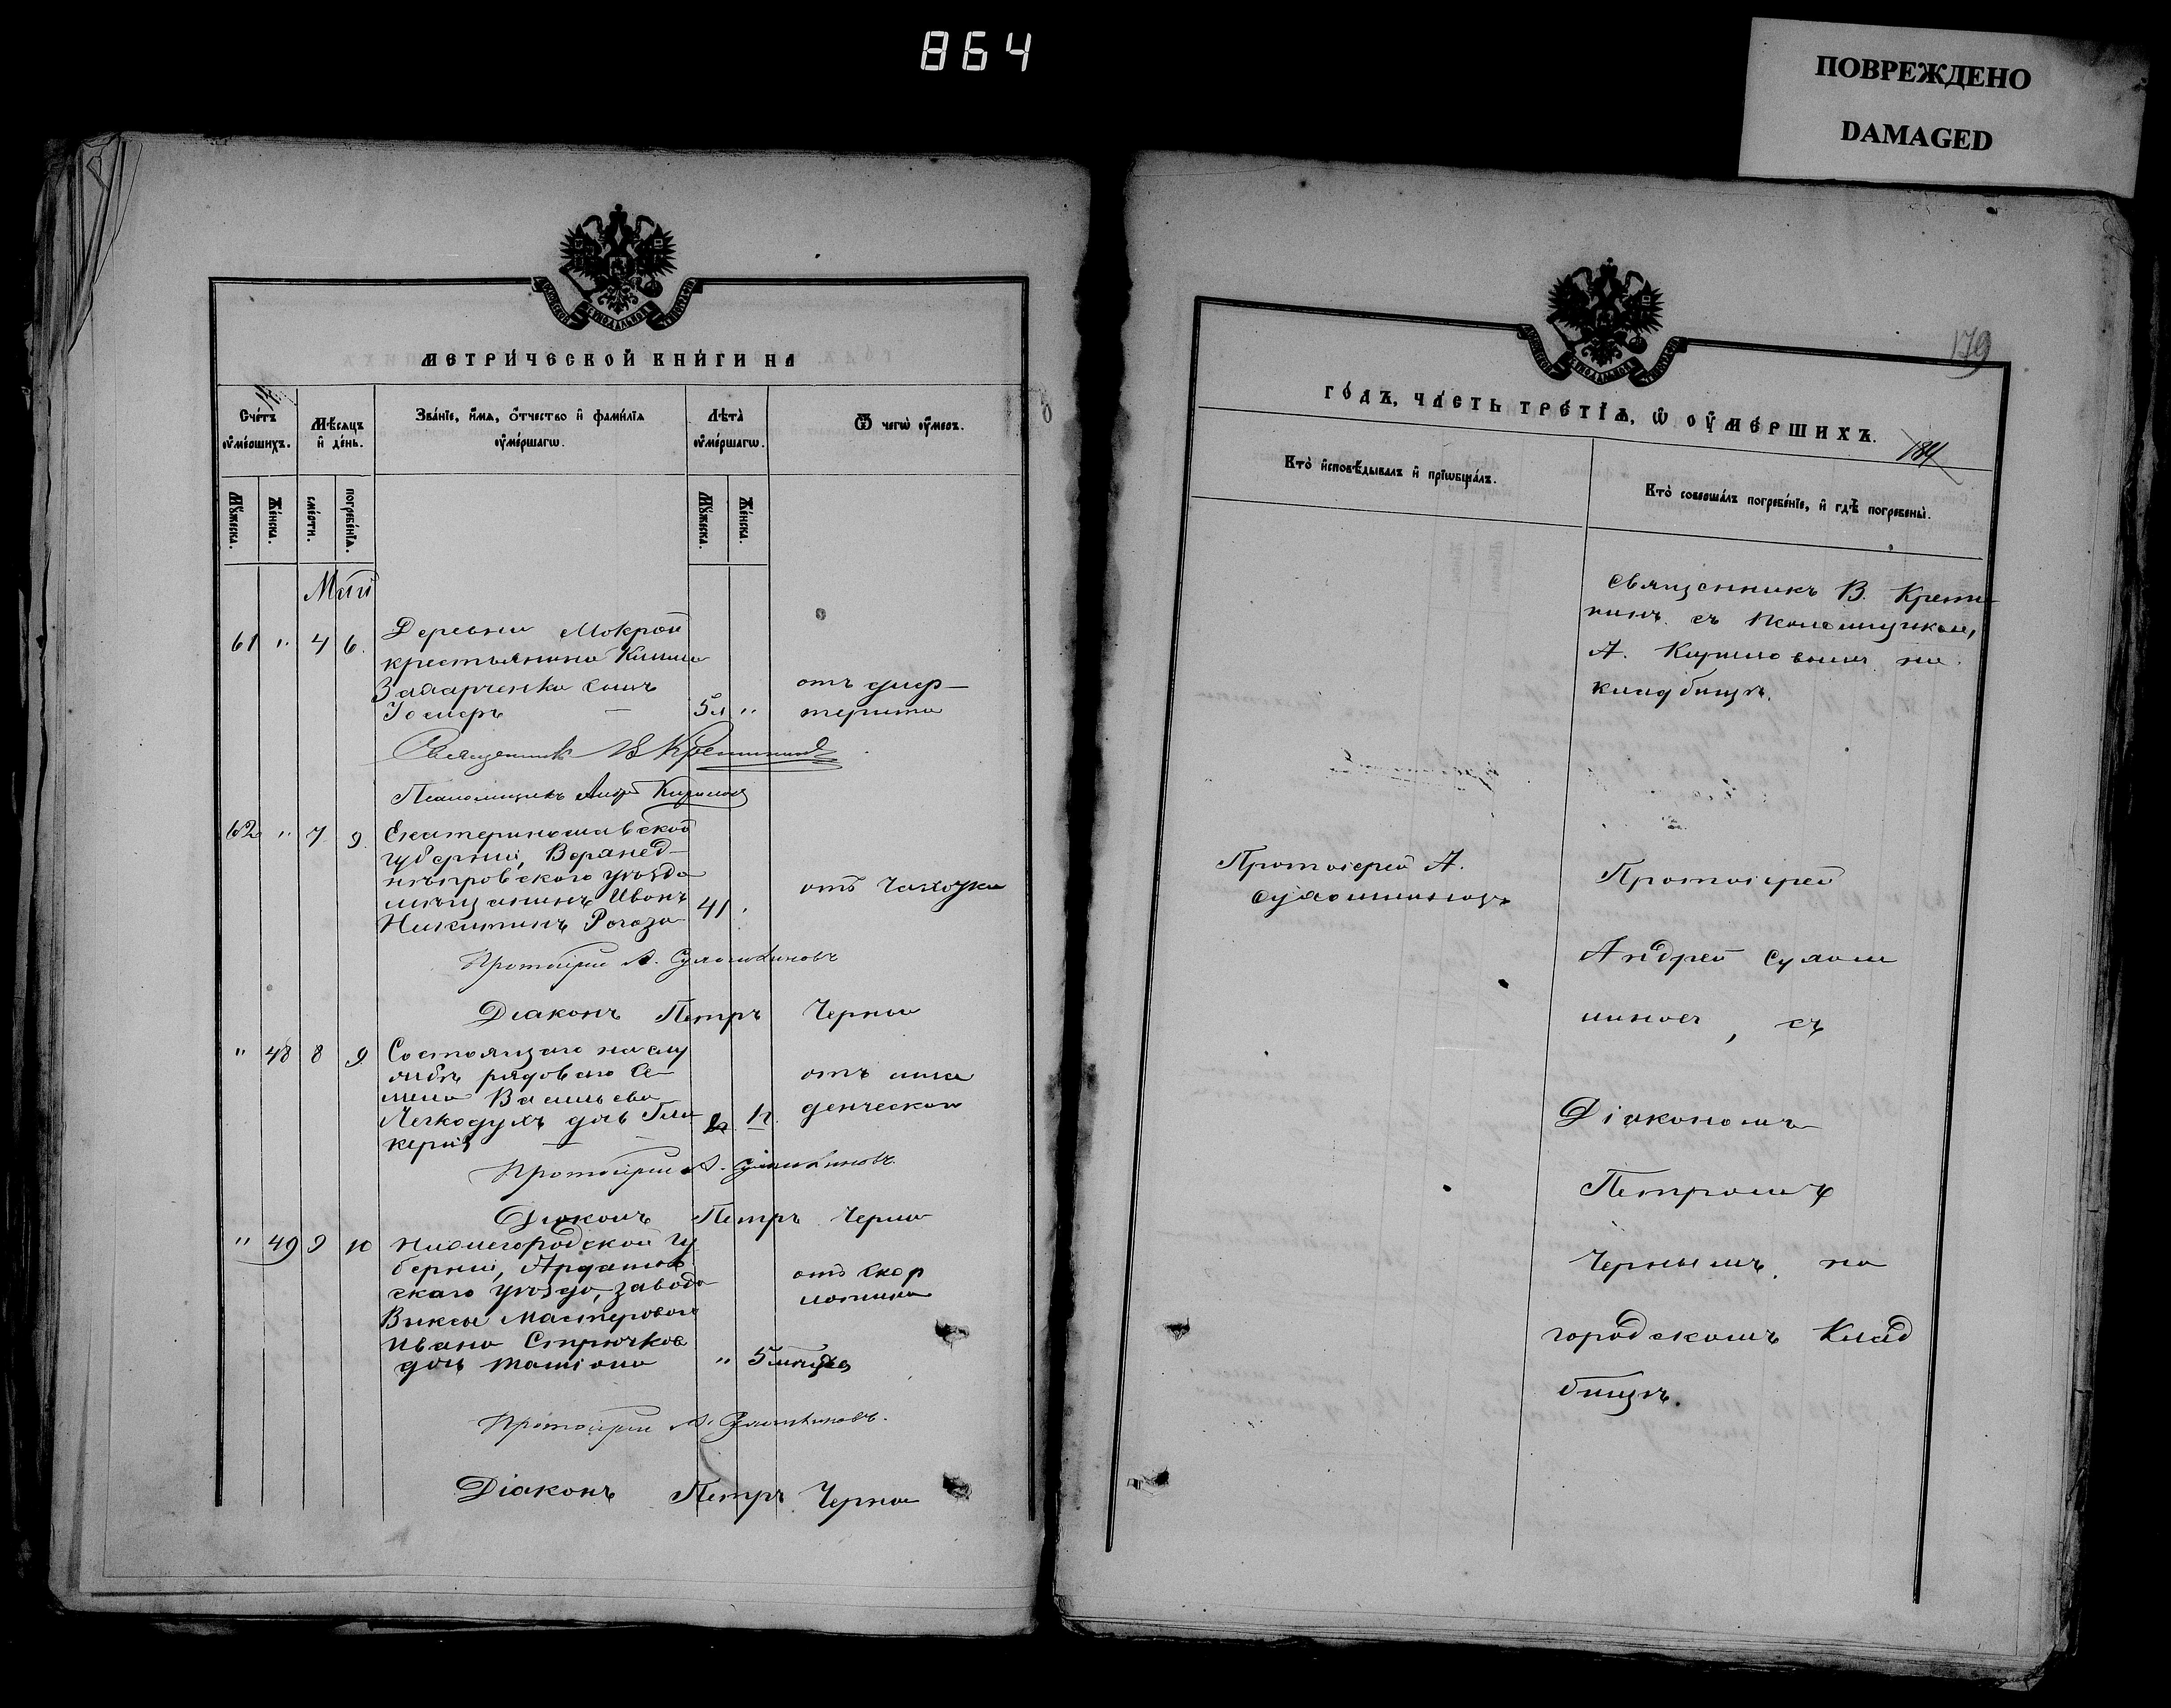 864
ПОВРЕЖДЕНО
DAMAGED
МЕТРИ́ЧЕСКОЙ КНИ́ГИ НА
Сче́тъ оу҆ме́ршихъ.
Мѣ́сяцъ и҆ де́нь.
Зва́нїе, и҆́мѧ, ѻ҆́тчество и҆ фами́лїѧ оу҆ме́ршагѡ.
Лѣта̀ оу҆ме́ршагѡ.
Ѿ чегѡ̀ оу҆́меръ.
Мꙋ́жеска.
Же́нска.
сме́рти.
погребе́нїѧ.
Мꙋ́жеска.
Же́нска.
Май
61 " 4 6.
Деревни Мокрой
крестьянина
Захарченка сынъ
5 "
отъ диф-
терита
Священникъ В Крети
Псаломщикъ Андр Кирилов
62 " 7 9.
Екатеринославской
губерніи, Верхнед-
нѣпровскаго уѣзда
мѣщанинъ Иванъ
Никитинъ Рогоза
41
отъ чахотки
Протоіерей А. Сулошниковъ
Діаконъ Петръ Черны
" 48 8 9
Состоящаго на слу
жбѣ рядоваго Се-
мена Васильева
Легкодухъ дочь Гли
керія
отъ мла
денческой
Протоіерей А.
Діаконъ Петръ Черны
" 49 9 10
Нижегородской гу
берніи, Ардатов
скаго уѣзда, завода
Выксы мастероваго
Ивана Стрючкова
дочь Татіана
" 5 мѣсяц
отъ скар
латины
Протоіерей А.
Діаконъ Петръ Черны
179
ГО́ДЪ, ЧА́СТЬ ТРЕ́ТЇѦ, Ѡ҆ ОУ҆МЕ́РШИХЪ.
184
Кто̀ и҆сповѣ́дывалъ и҆ прїѡбща́лъ.
Кто̀ соверша́лъ погребе́нїе, и҆ гдѣ̀ погребены̀.
Священникъ В. Крети-
нинъ съ псаломщиком,
А. Кириловымъ на
кладбищѣ.
Протоіерей А.
Протоіерей
Андрей Сулош
никовъ, съ
Діакономъ
Петромъ
Чернымъ на
городскомъ Клад
бищѣ.